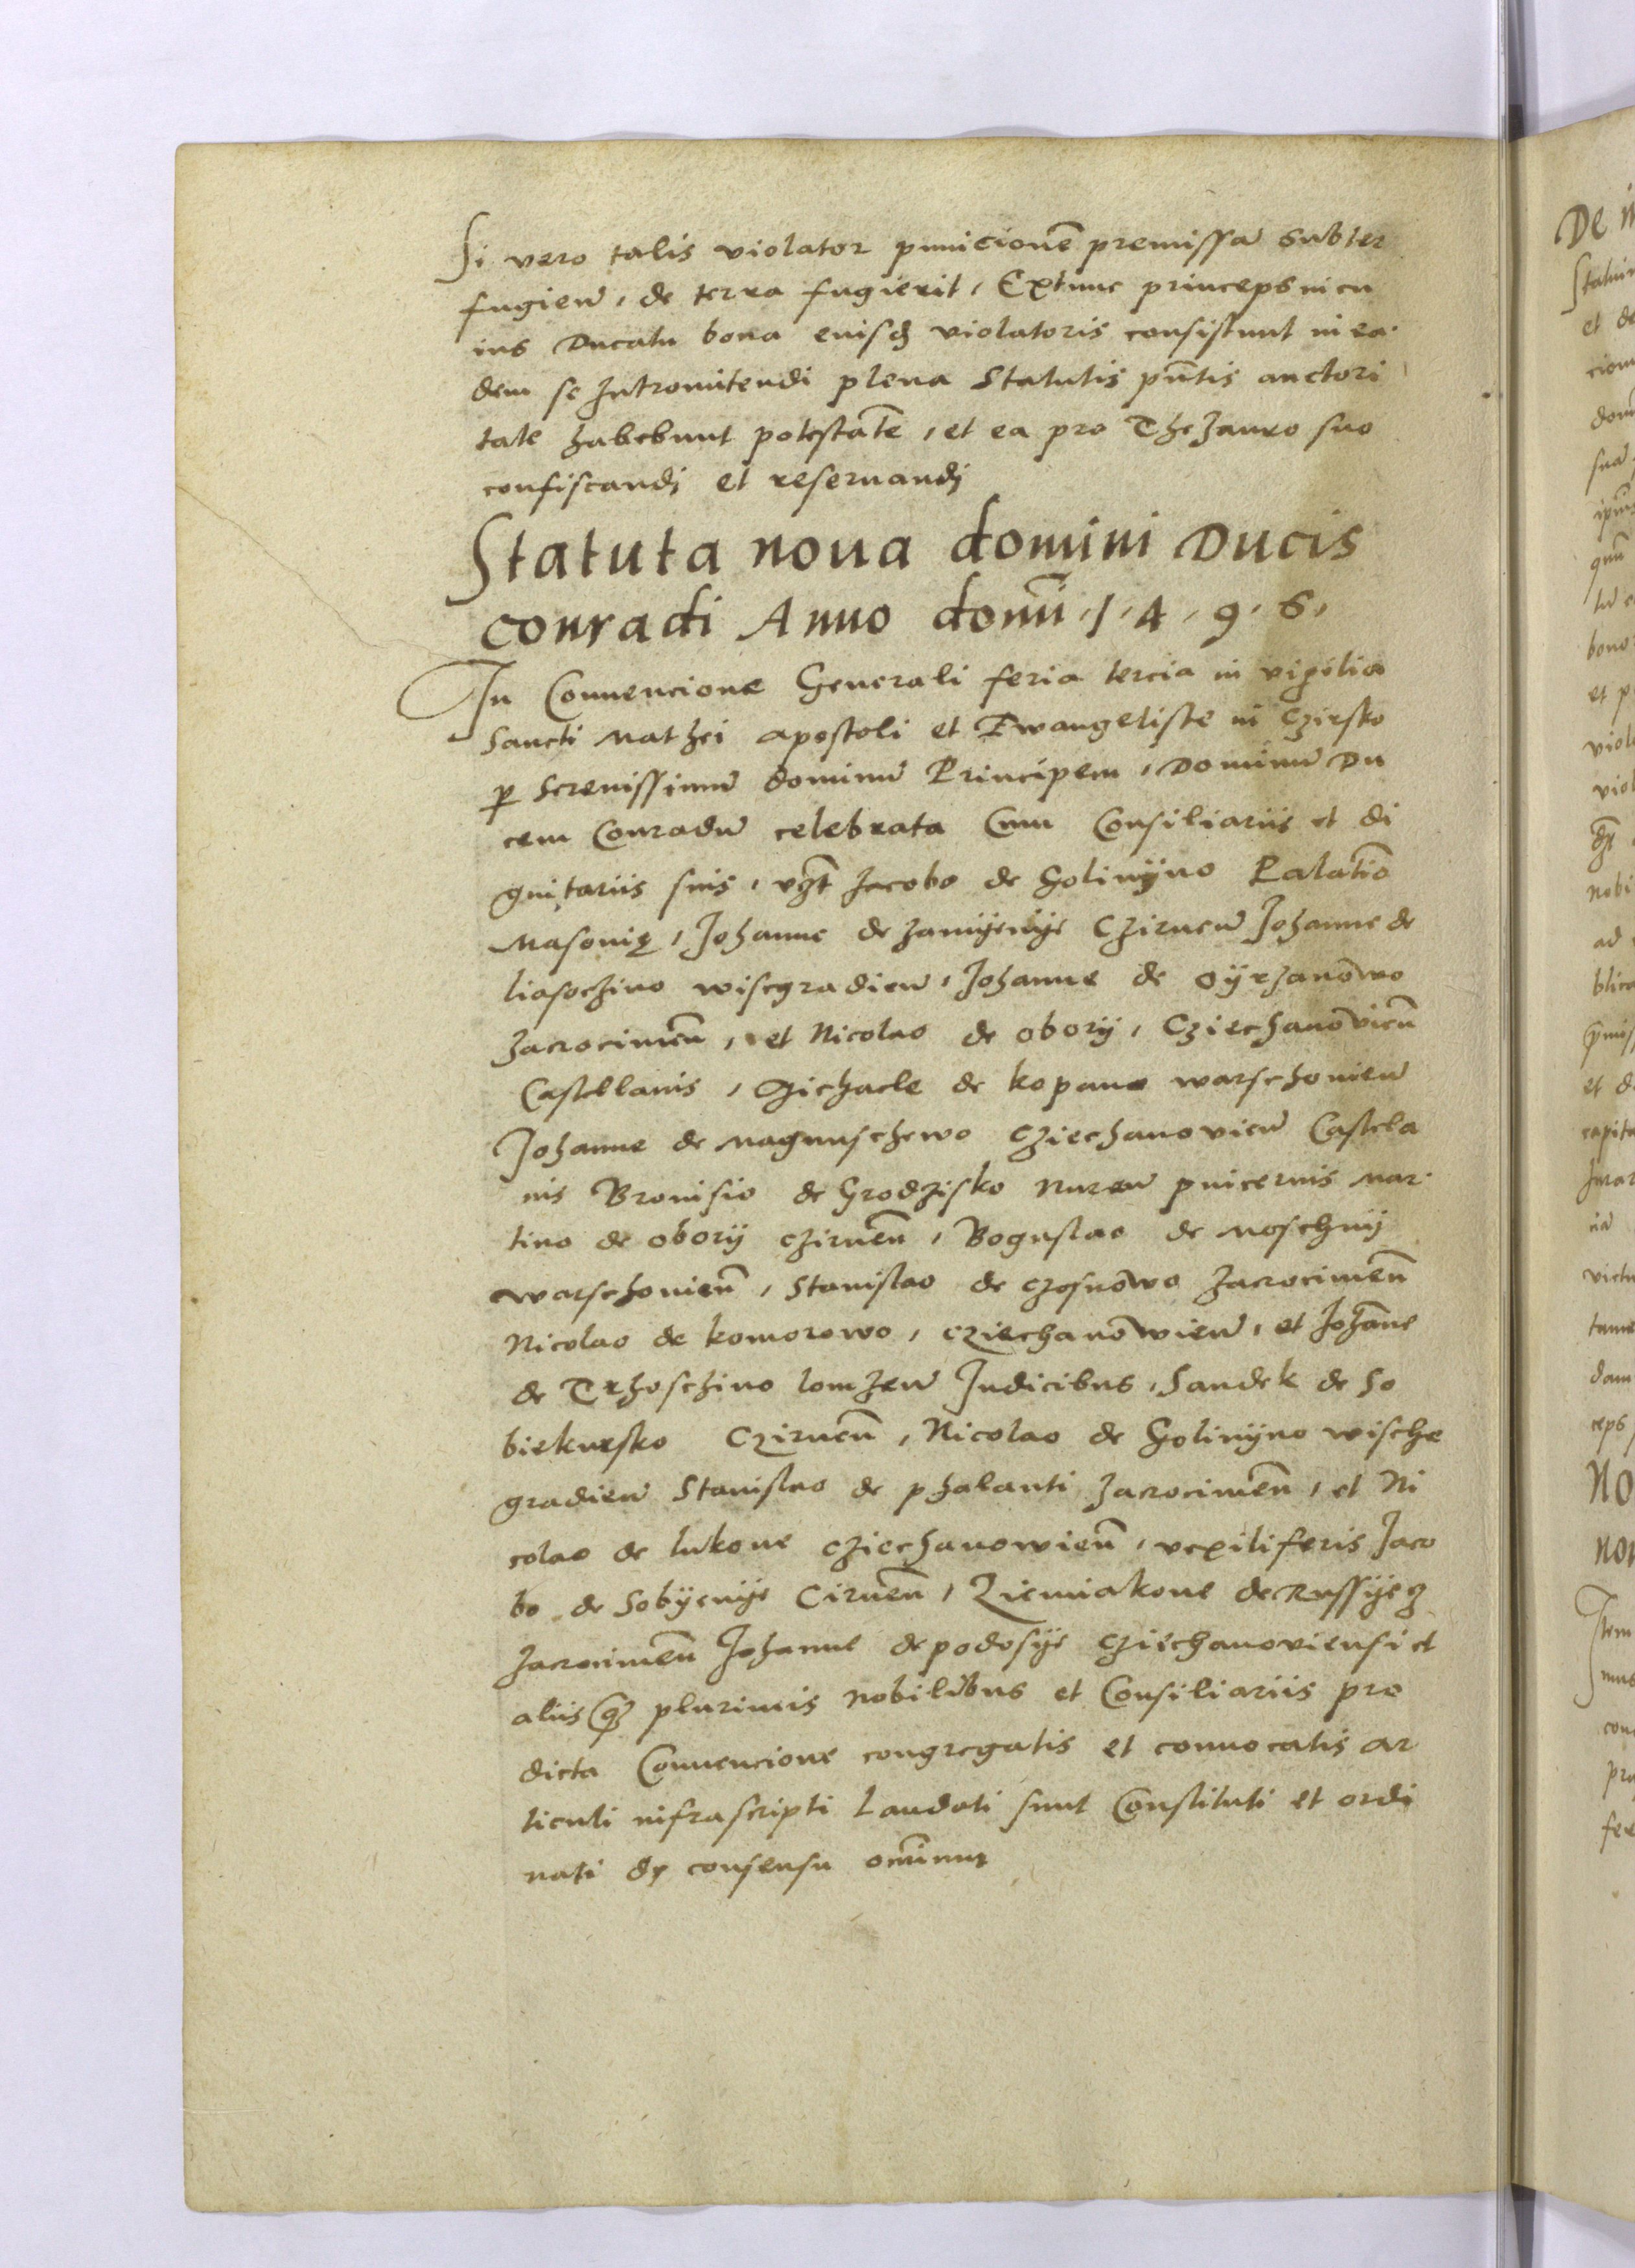 Si vero talis violator punicionē premissā subter
fugien̄, de terra fugierit, Extunc princeps in cu
ius Ducatu bona euisdē violatoris consistunt in ea
dem se Intromitendi plena Statutis pn̄tis auctori
tate habebunt potestatē, et ea pro Thezauro suo
confiscandj et reseruandj
Statuta noua domini Ducis
Conradi Anno domī ·1·4·9·6·
In Conuencione Generali feria tercia in vigilia
Sancti Mathei apostoli et Ewangeliste in Czirsko
ꝑ Serenissimū dominū Principem, Dominū Du
cem Conradū celebrata Cum Consiliariis et di
gnitariis suis, vꝫt Jacobo de Golinyno Palatīo
Masouię, Johanne de zamyenye Czirnen̄ Johanne de
liasoczino wisegradien̄, Johanne de Oyrzanowo
Zacrocimen̄, et Nicolao de obory, Cziechanovien̄
Castellanis, Michaele de kopana warschouien̄
Johanne de Magnuschewo Cziechanovien̄ Castela
nis Bronisio de Grodzisko Nuren̄ pincernis Mar
tino de obory Czirnen̄, Boguslao de Moschny
warschouien̄, Stanislao de czosnowo Zacrocimen̄
Nicolao de komorowo, Cziechanowien̄, et Johāne
de Trzoschino lomzen̄ Judicibus, Sandek de So
biekursko Czirnen̄, Nicolao de Golinyno wische
gradien̄ Stanislao de phalanti Zacrocimen̄, et Ni
colao de lukone Cziechanowien̄, vexiliferis Jaco
bo de Sobyenye Cirnen̄, Ziemakone de Russyecz
Zacrocimen̄ Johanne de podosye Cziechanoviensi et
aliis qȝ plurimis Nobilibus et Consiliariis pre
dicta Conuencione congregatis et conuocatis ar
ticuli infrascripti Laudati sunt Constituti et ordi
nati de consensu omīnum